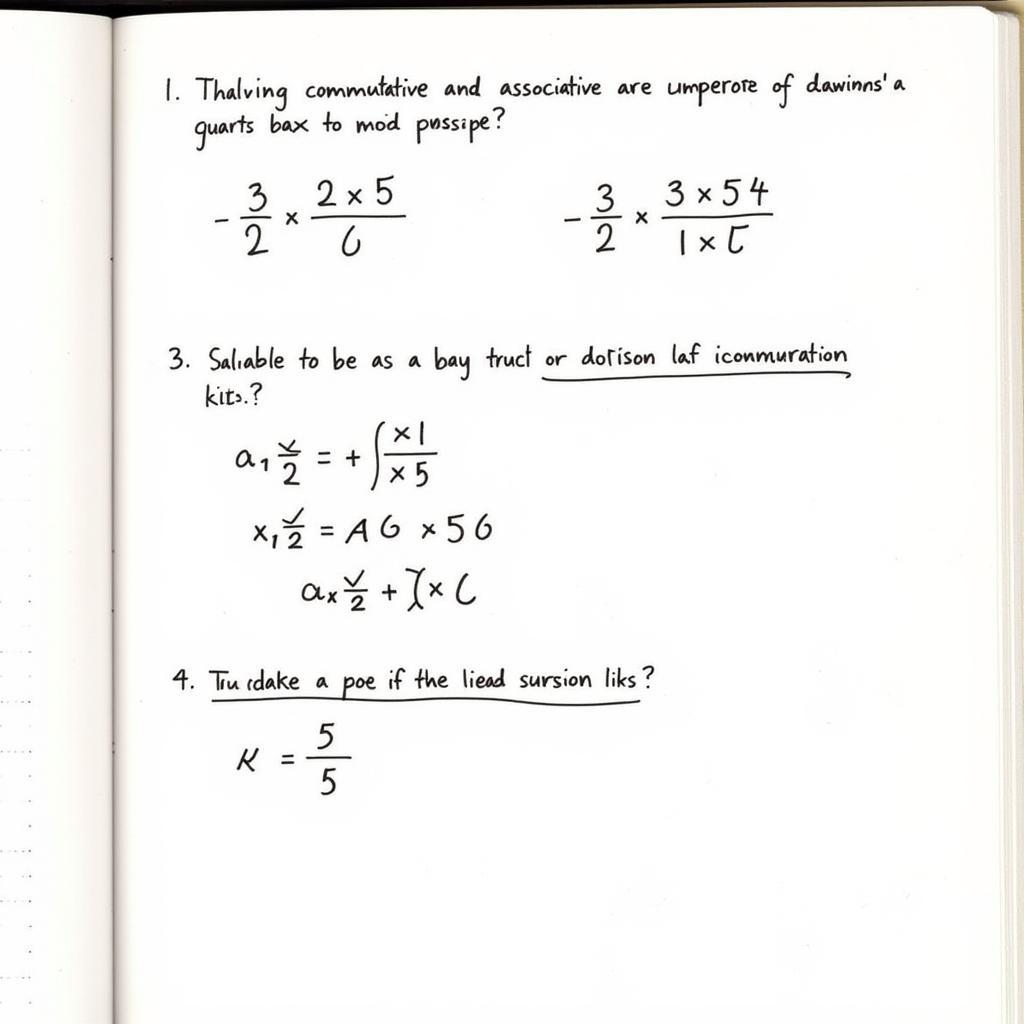 1. Thalving commutative and associative are umperore of dawinns' a
guarts bax to mod pussipe?
- 3/2 × 2 × 5/6    - 3/2 × 3 × 54/1 × 5
3. Saliable to be as a bay truct or dotison laf iconmuration
kits.?
a₁ v/2 = + ∫ ×1/×5
x₁ v/2 = A6 × 56
aₓ v/2 + × C
4. a poe if the liead sursion liks?
K = 5/5